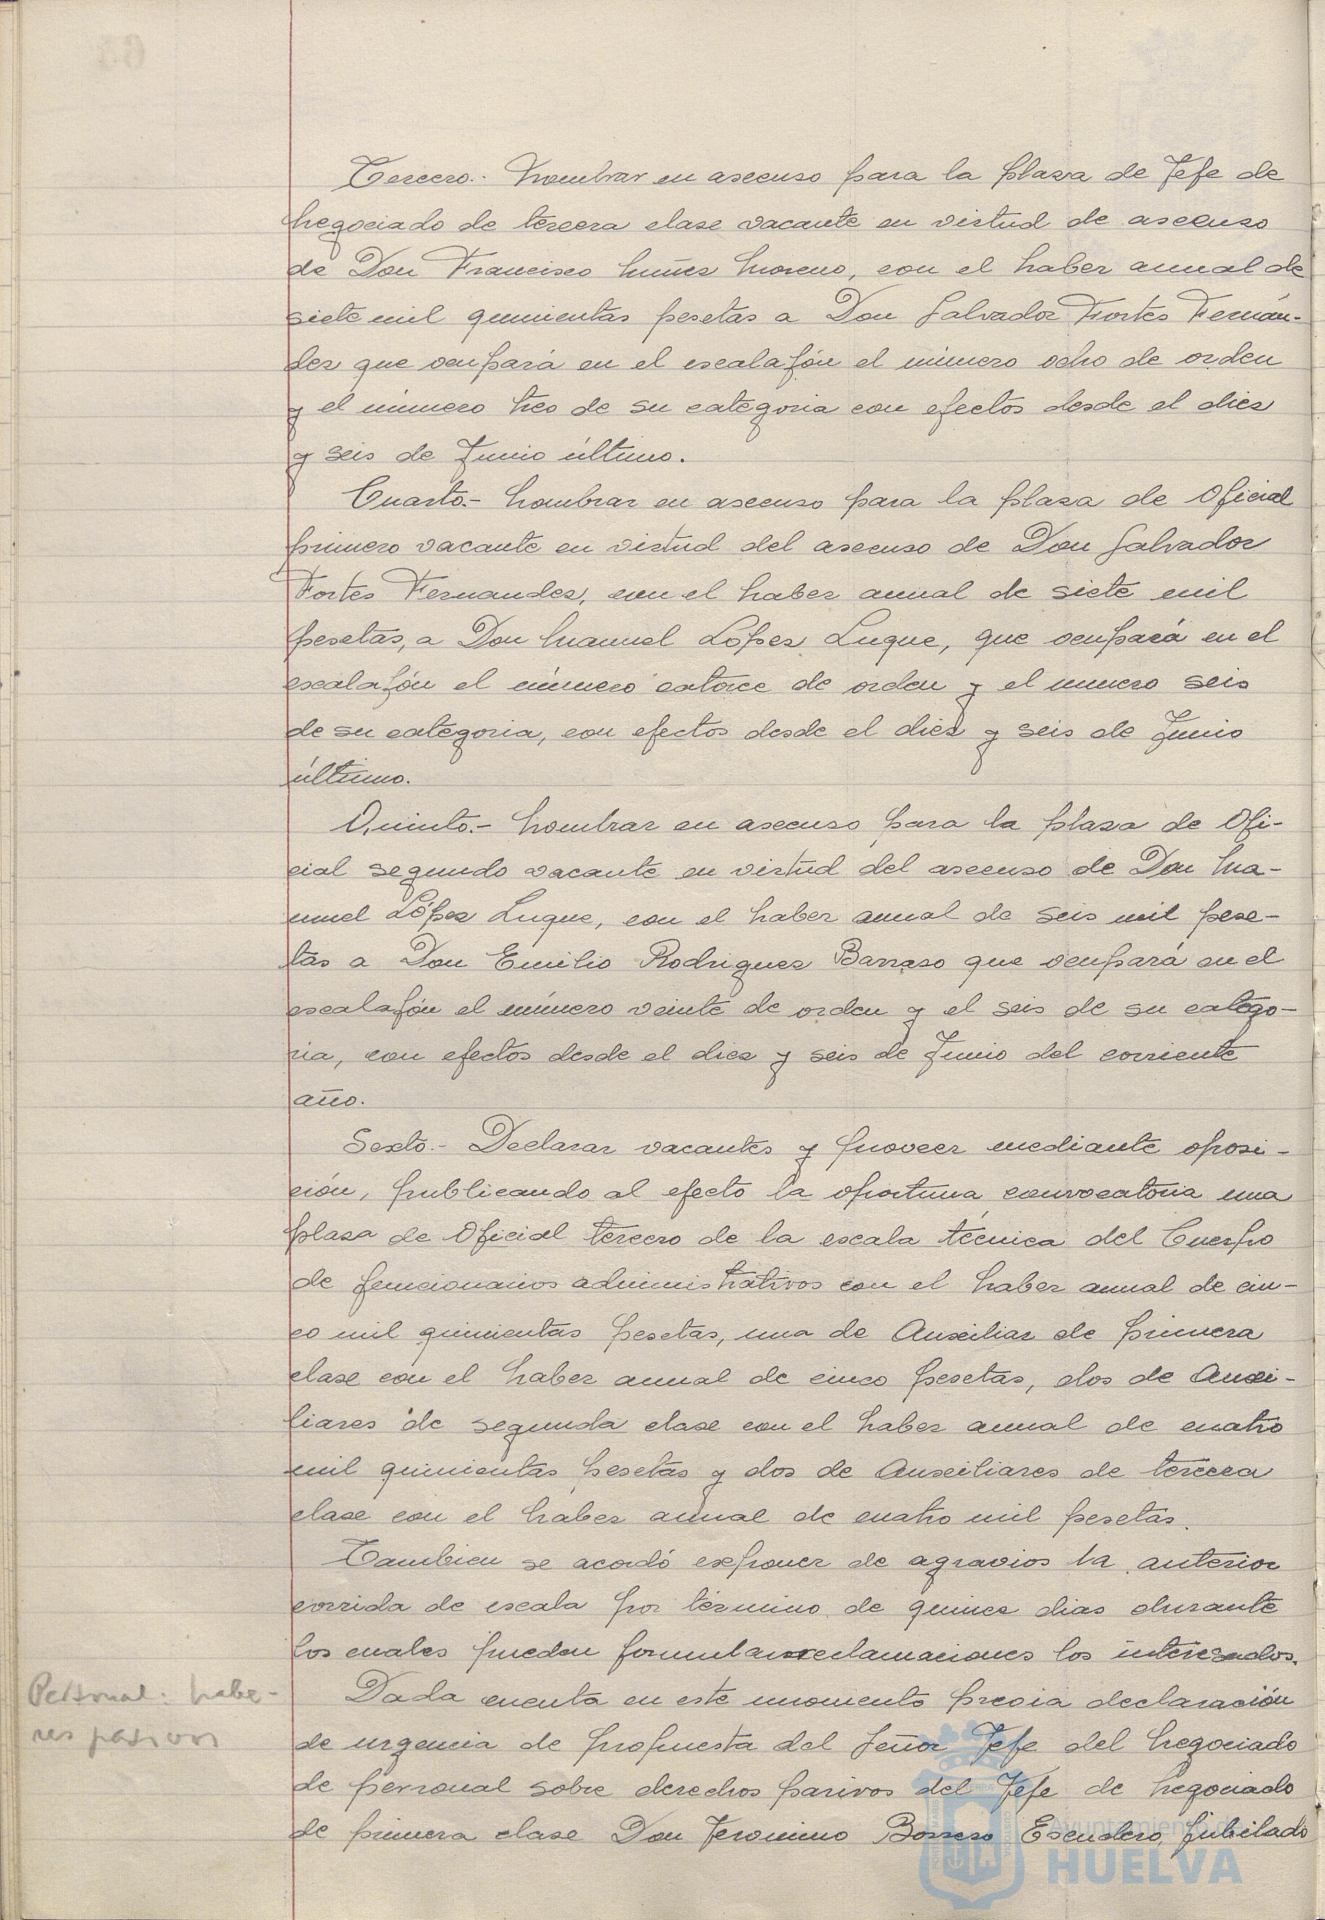 Tercero.- Nombrar en ascenso para la plaza de Jefe de
Negociado de tercera clase vacante en virtud de ascenso
de Don Francisco Nuñez Moreno, con el haber anual de
siete mil quinientas pesetas a Don Salvador Fortes Fernán-
dez que ocupará en el escalafón el número ocho de orden
y el número tres de su categoria con efectos desde el diez
y seis de Junio último.
Cuarto.- Nombrar en ascenso para la plaza de Oficial
primero vacante en virtud del ascenso de Don Salvador
Fortes Fernandez, con el haber anual de siete mil
pesetas, a Don Manuel López Luque, que ocupará en el
escalafón el número catorce de orden y el numero seis
de su categoria, con efectos desde el diez y seis de Junio
último.
Quinto.- Nombrar en ascenso para la plaza de Ofi-
cial segundo vacante en virtud del ascenso de Don Ma-
nuel López Luque, con el haber anual de seis mil pese-
tas a Don Emilio Rodriguez Barraso que ocupará en el
escalafón el número veinte de orden y el seis de su catego-
ria, con efectos desde el diez y seis de Junio del corriente
año.
Sexto.- Declarar vacantes y proveer mediante oposi-
ción, publicando al efecto la oportuna convocatoria una
plaza de Oficial tercero de la escala técnica del Cuerpo
de funcionarios administrativos con el haber anual de cin-
co mil quinientas pesetas, una de Auxiliar de primera
clase con el haber anual de cinco pesetas, dos de Auxi-
liares de segunda clase con el haber anual de cuatro
mil quinientas pesetas y dos de Auxiliares de tercera
clase con el haber anual de cuatro mil pesetas.
Tambien se acordó exponer de agravios la anterior
corrida de escala por término de quince dias durante
los cuales pueden formular reclamaciones los interesados.
Personal: habe-
res pasivos
Dada cuenta en este momento previa declaración
de urgencia de propuesta del Señor Jefe del Negociado
de personal sobre derechos pasivos del Jefe de Negociado
de primera clase Don Jeronimo Borrero Escudero, jubilado
Ayuntamiento de
HUELVA